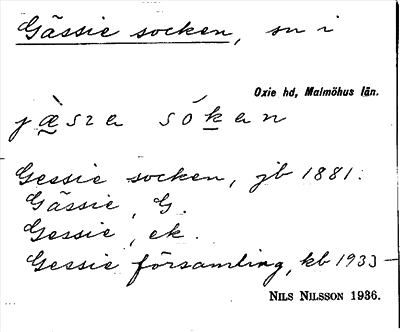 Gässie socken, sn i
Oxie hd, Malmöhus län.
jæ̀sze sóken
Gessie socken, jb 1881.
Gässie, G.
Gessie, ek.
Gessie församling, kb 1933 –
NILS NILSSON 1936.